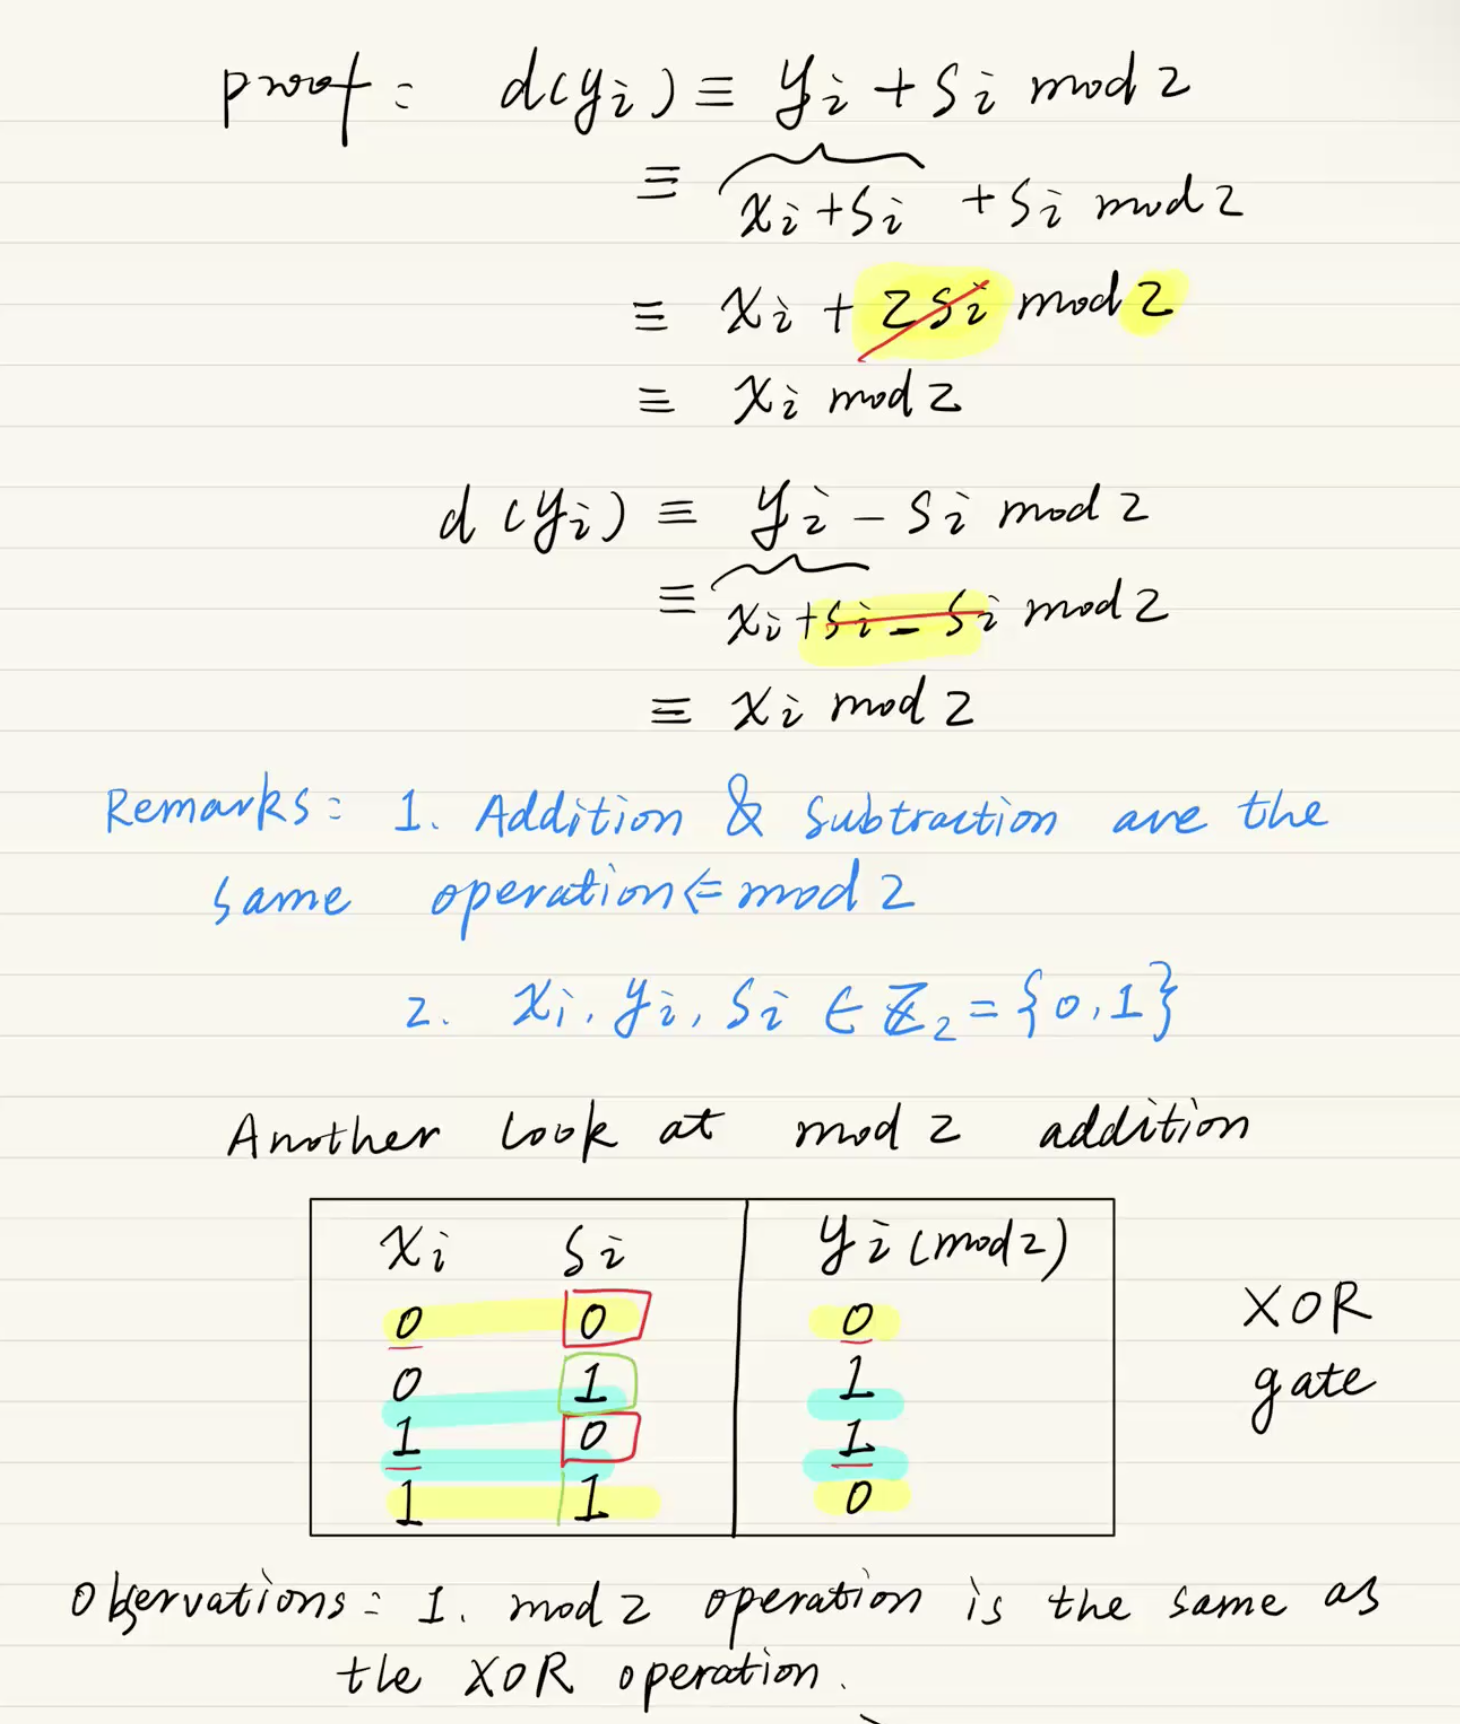 proof: d(yi) ≡ yi + si mod 2
≡ xi + si + si mod 2
≡ xi + 2si mod 2
≡ xi mod 2
d(yi) ≡ yi - si mod 2
≡ xi + si - si mod 2
≡ xi mod 2
Remarks: 1. Addition & Subtraction are the
same operation ⇐ mod 2
2. xi, yi, si ∈ ℤ2 = {0, 1}
Another look at mod 2 addition
xi si yi (mod 2)
0 0 0
XOR
0 1 1
gate
1 0 1
1 1 0
Observations: 1. mod 2 operation is the same as
the XOR operation.